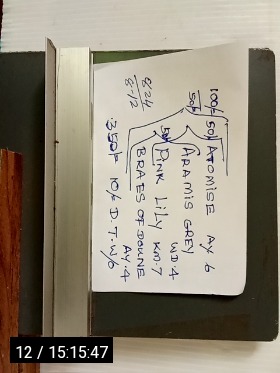 100/- 50/- ATOMISE AY 6
50/- ARAMIS GREY WD-4
50/- PINK LILY KM-7
BRAES OF DOUNE AY-4
350/- 10/- D.T. W/6
8-24
8-12
12 / 15:15:47